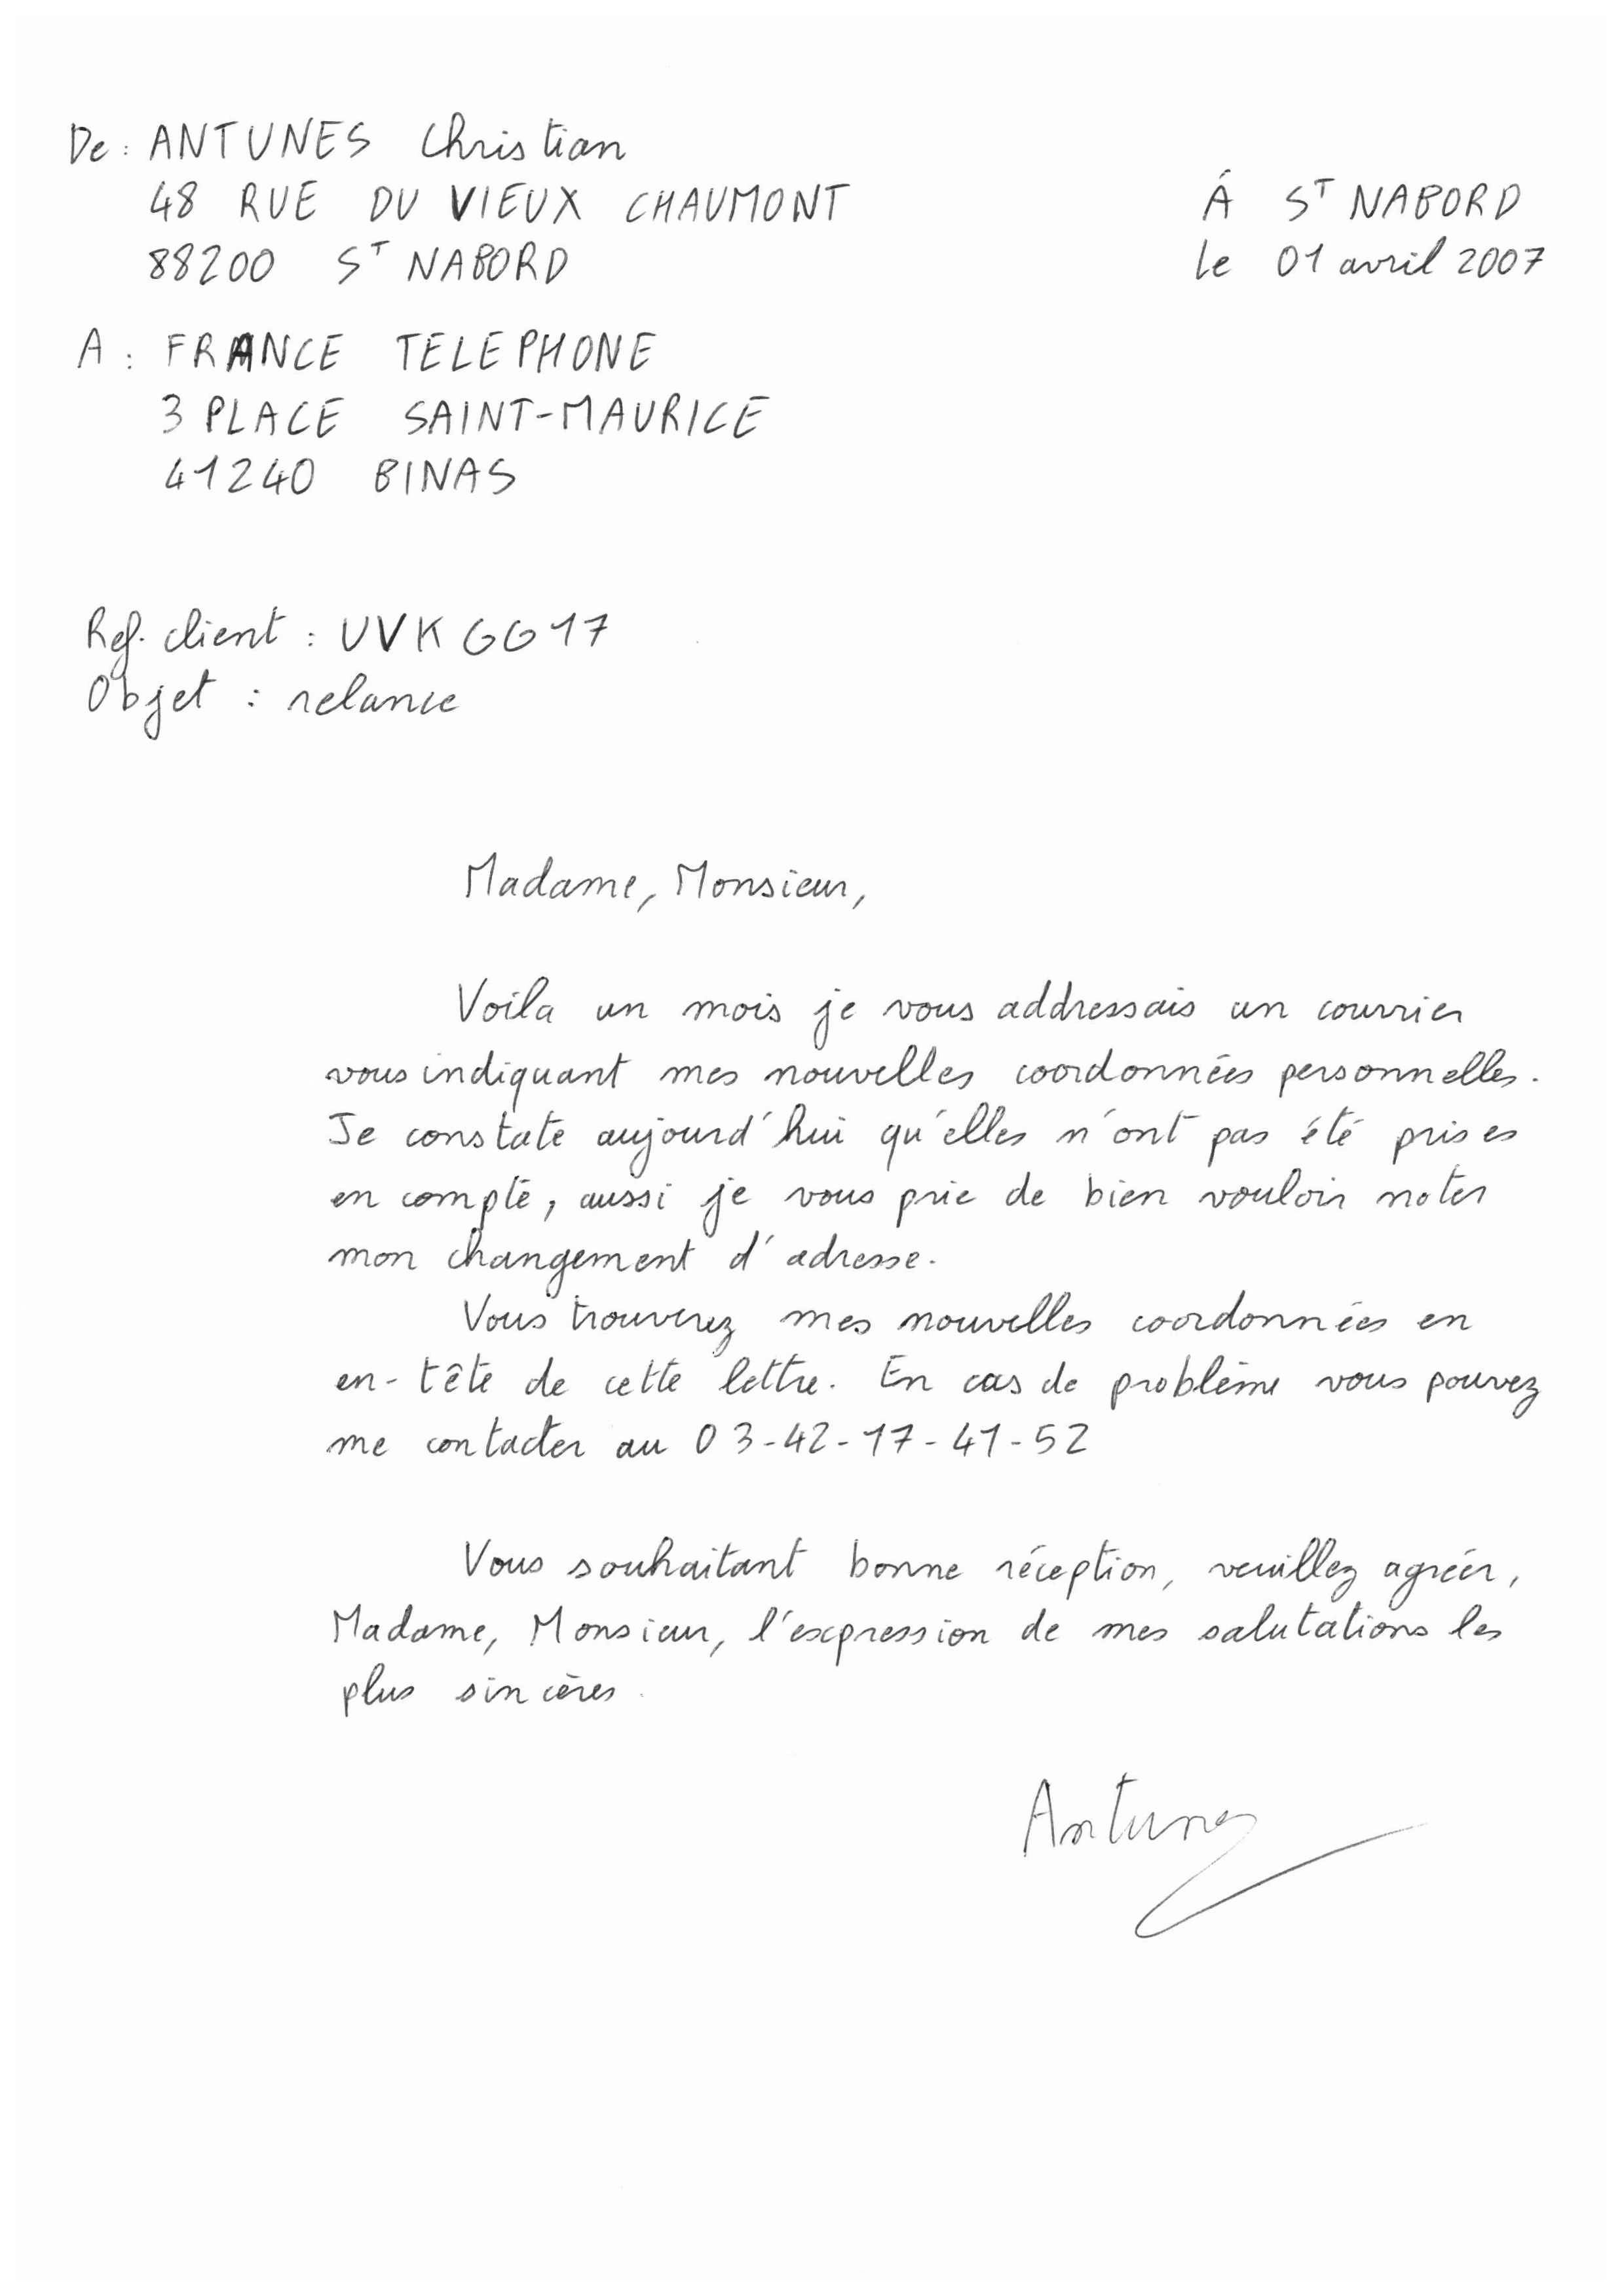 De : ANTUNES Christian
48 RUE DU VIEUX CHAUMONT
88200 ST NABORD
À ST NABORD
le 01 avril 2007
A : FRANCE TELEPHONE
3 PLACE SAINT-MAURICE
41240 BINAS
Ref. client : UVKGG17
Objet : relance
Madame, Monsieur,
Voila un mois je vous addressais un courrier
vous indiquant mes nouvelles coordonnées personnelles.
Je constate aujourd'hui qu'elles n'ont pas été prises
en compte, aussi je vous prie de bien vouloir noter
mon changement d'adresse.
Vous trouverez mes nouvelles coordonnées en
en-tête de cette lettre. En cas de problème vous pouvez
me contacter au 03-42-17-41-52
Vous souhaitant bonne réception, veuillez agréer,
Madame, Monsieur, l'expression de mes salutations les
plus sincères.
Antunes